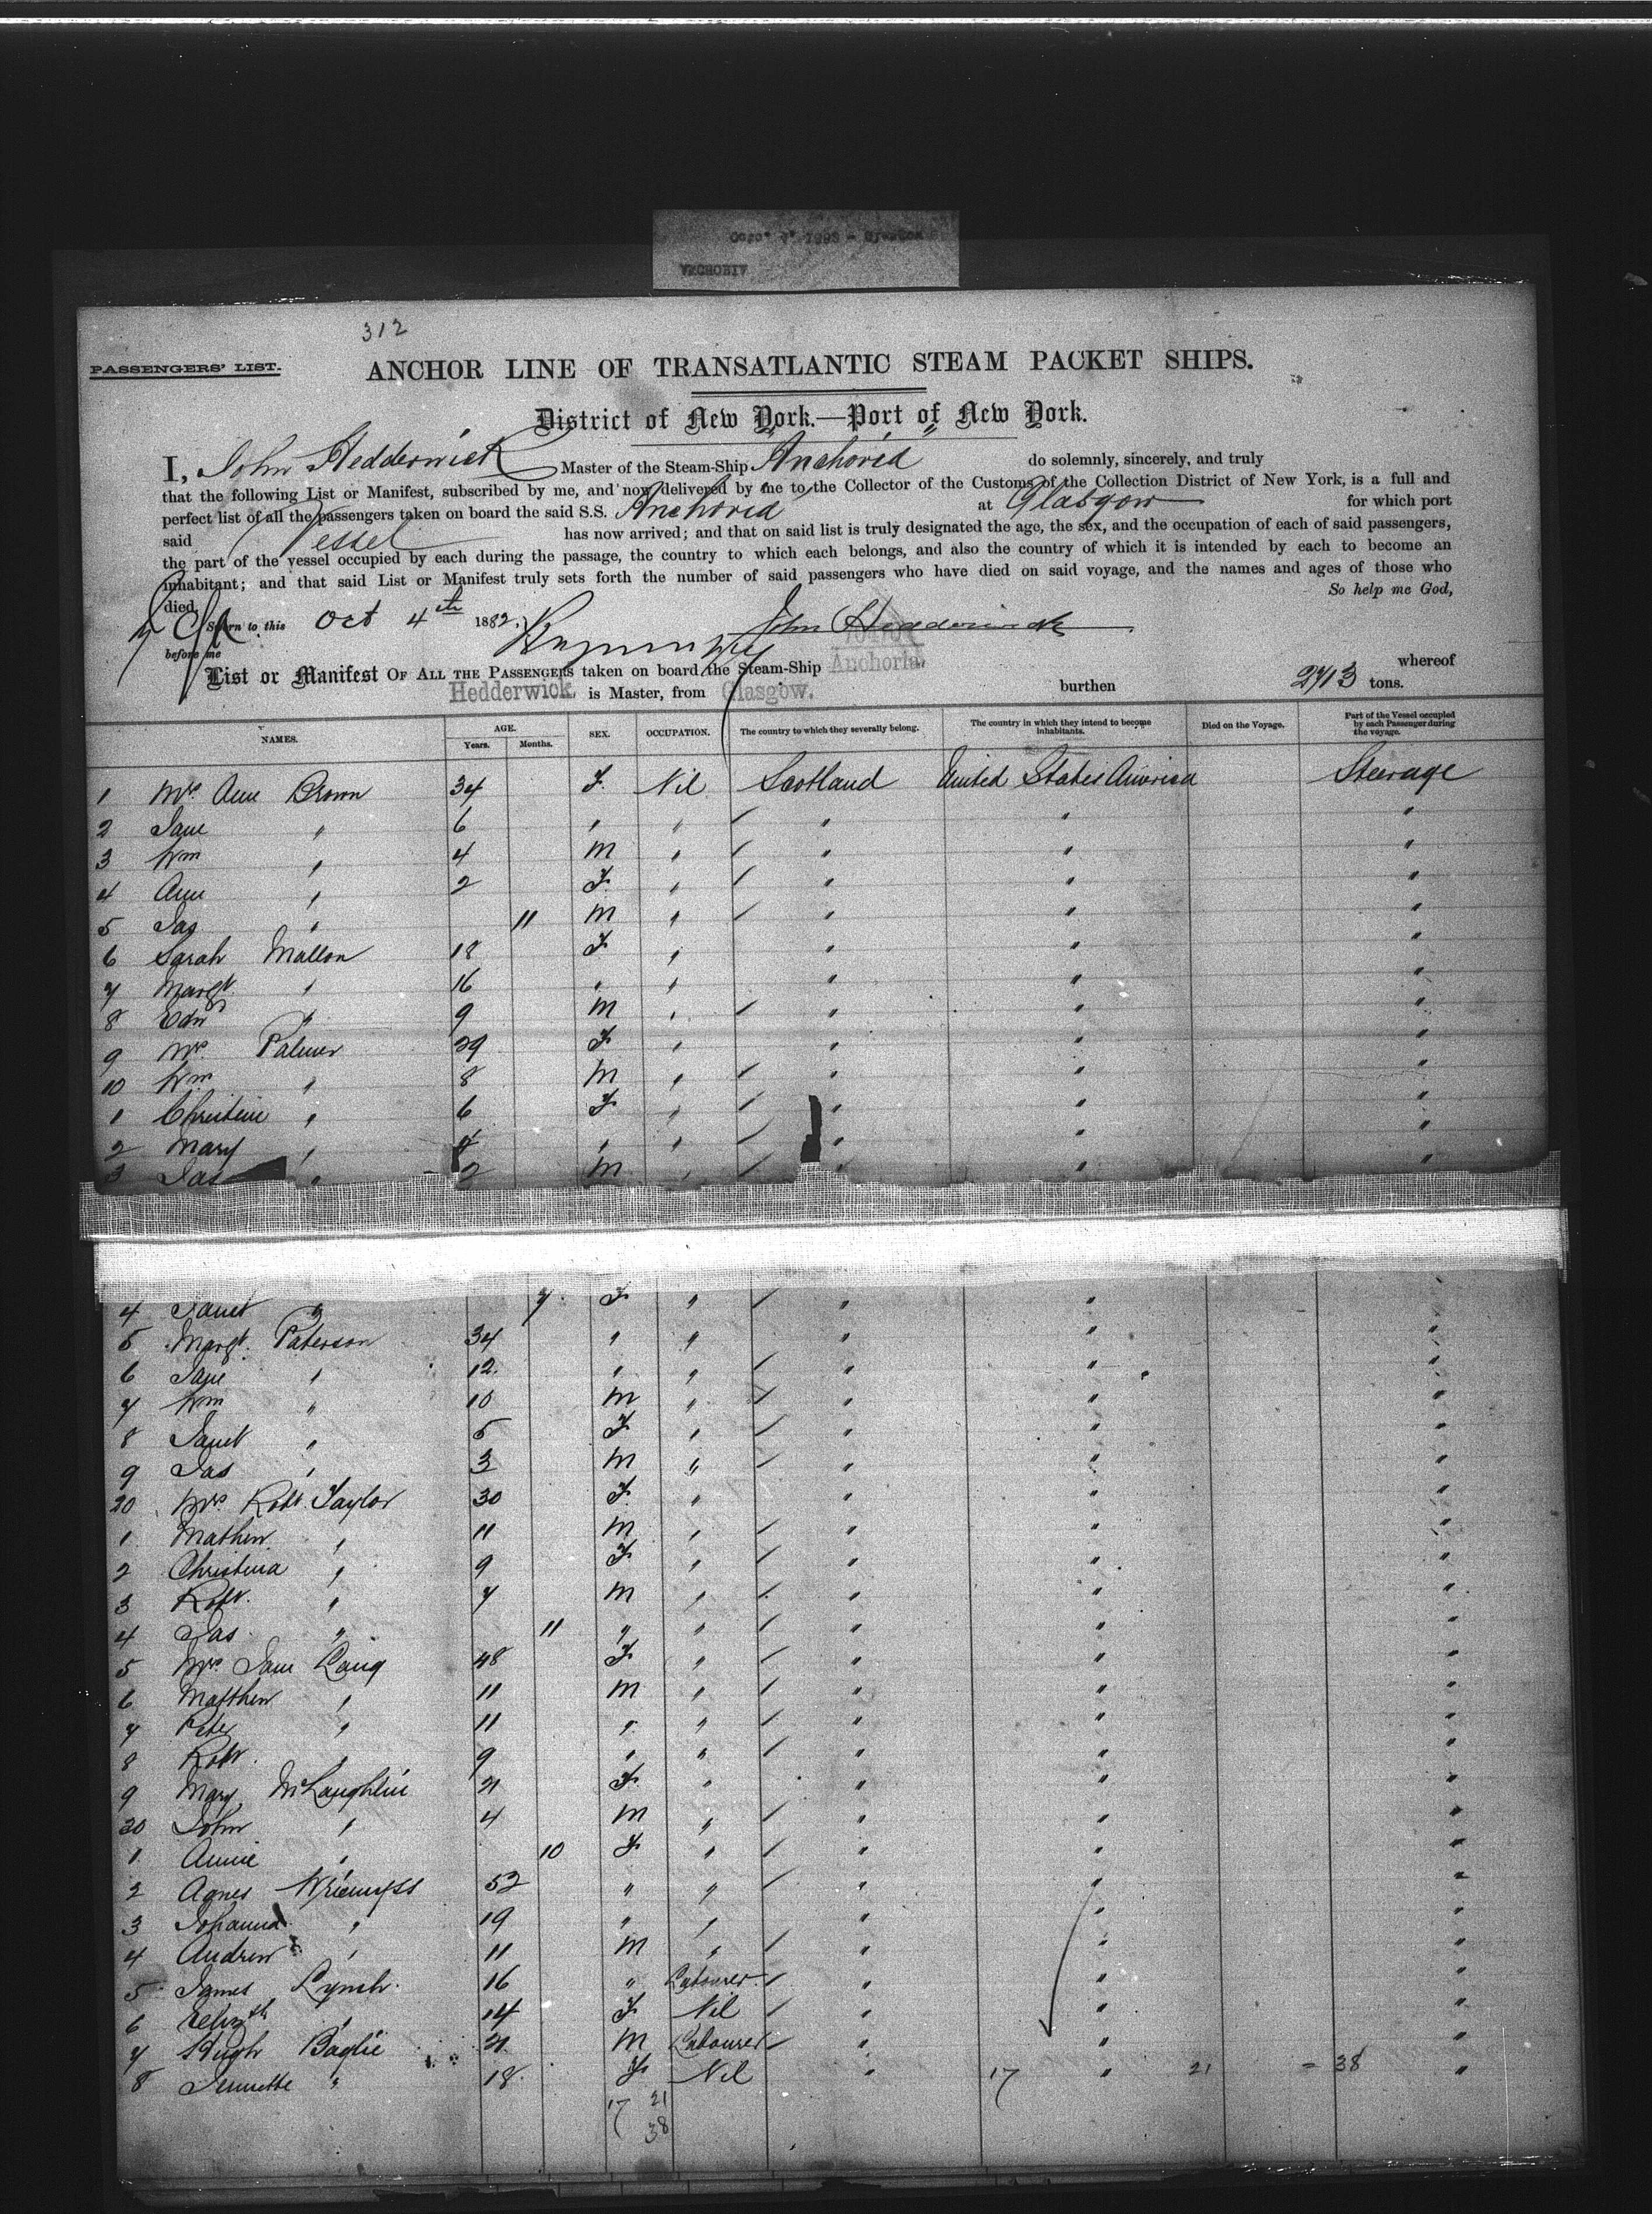 312
PASSENGERS' LIST.
ANCHOR LINE OF TRANSATLANTIC STEAM PACKET SHIPS.
District of New York.—Port of New York.
I, John Hedderwick Master of the Steam-Ship "Anchoria" do solemnly, sincerely, and truly
that the following List or Manifest, subscribed by me, and now delivered by me to the Collector of the Customs of the Collection District of New York, is a full and
perfect list of all the passengers taken on board the said S.S. Anchoria at Glasgow for which port
said Vessel has now arrived; and that on said list is truly designated the age, the sex, and the occupation of each of said passengers,
the part of the vessel occupied by each during the passage, the country to which each belongs, and also the country of which it is intended by each to become an
inhabitant; and that said List or Manifest truly sets forth the number of said passengers who have died on said voyage, and the names and ages of those who
died. So help me God,
Sworn to this Oct 4th 1882. John Hedderwick
before me
List or Manifest OF ALL THE PASSENGERS taken on board the Steam-Ship Anchoria. whereof
Hedderwick is Master, from Glasgow. burthen 2713 tons.
NAMES. AGE. Years. Months. SEX. OCCUPATION. The country to which they severally belong. The country in which they intend to become inhabitants. Died on the Voyage. Part of the Vessel occupied by each Passenger during the voyage.
1 Mrs Ann Brown 34 F. Nil Scotland United States America Steerage
2 Jane " 6 " " " " "
3 Wm " 4 M " " " "
4 Ann " 2 F. " " " "
5 Jas " 11 M " " " "
6 Sarah Mallon 18 F " " " "
7 Margt " 16 " " " " "
8 Edw " 9 M " " " "
9 Mrs Palmer 29 F " " " "
10 Wm " 8 M " " " "
1 Christine " 6 F " " " "
2 Mary " 4 " " " " "
3 Jas " 2 M " " " "
4 Janet " 7 F " " " "
5 Margt. Paterson 34 " " " " "
6 Jane " 12 " " " " "
7 Wm " 10 M " " " "
8 Janet " 5 F " " " "
9 Jas " 3 M " " " "
20 Mrs Robt. Taylor 30 F " " " "
1 Mathew " 11 M " " " "
2 Christina " 9 F " " " "
3 Robt. " 7 M " " " "
4 Jas " 11 " " " " "
5 Mrs Jane Laing 48 F " " " "
6 Matthew " 11 M " " " "
7 Peter " 11 " " " " "
8 Robt. " 9 " " " " "
9 Mary McLaughlin 21 F " " " "
30 John " 4 M " " " "
1 Annie " 10 F " " " "
2 Agnes 52 " " " " "
3 Johanna " 19 " " " " "
4 Andrew " 11 M " " " "
5 James Lynch. 16 " Labourer " " "
6 Elizth " 14 F Nil " " "
7 Hugh Baglie 21 M Labourer " " "
8 Jennette " 18 F Nil " 17 " 21 = 38 "
17 21
38